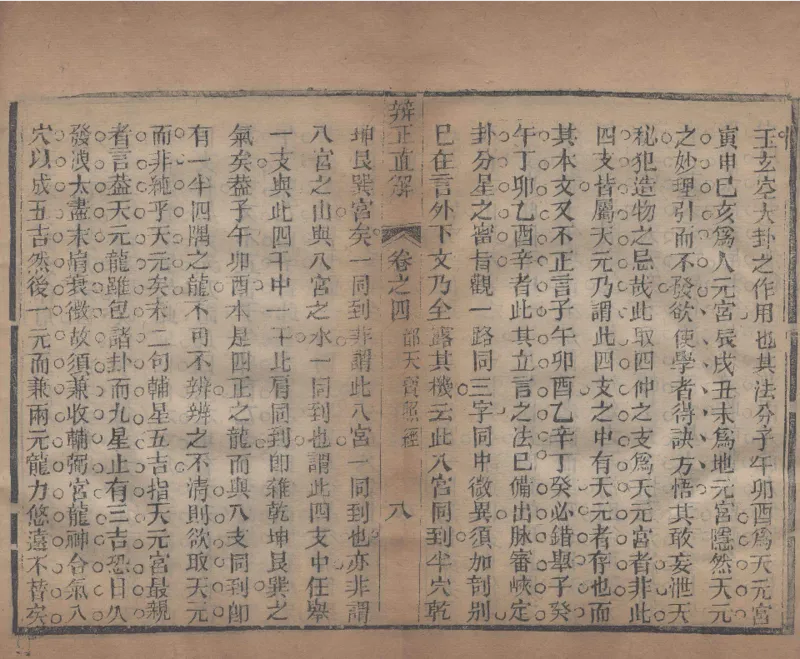 王玄空大卦之作用也其法分子午卯酉爲天元宮
寅申巳亥爲人元宮辰戌丑未爲地元宮隱然天元
之妙理引而不發欲使學者得訣方悟其敢妄泄天
秘犯造物之忌哉此取四仲之支爲天元宮者非此
四支皆屬天元乃謂此四支之中有天元者存也而
其本文又不正言子午卯酉乙辛丁癸必錯舉子癸
午丁卯乙酉辛者此其立言之法已備出脉審峽定
卦分星之密旨觀一路同三字同中微異須加剖別
已在言外下文乃全露其機云此八宮同到半穴乾
辨正直解 卷之四 都天寶照經 八
坤艮巽宮矣一同到非謂此八宮一同到也亦非謂
八宮之山與八宮之水一同到也謂此四支中任舉
一支與此四干中一干此肩同到卽雜乾坤艮巽之
氣矣葢子午卯酉本是四正之龍而與八支同到卽
有一半四隅之龍不可不辨辨之不清則欲取天元
而非純乎天元矣末二句輔星五吉指天元宮最親
者言葢天元龍雖包諸卦而九星止有三吉恐日久
發洩太盡末肩衰微故須兼收輔弼宮龍神合氣入
穴以成五吉然後一元而兼兩元龍力悠遠不替矣